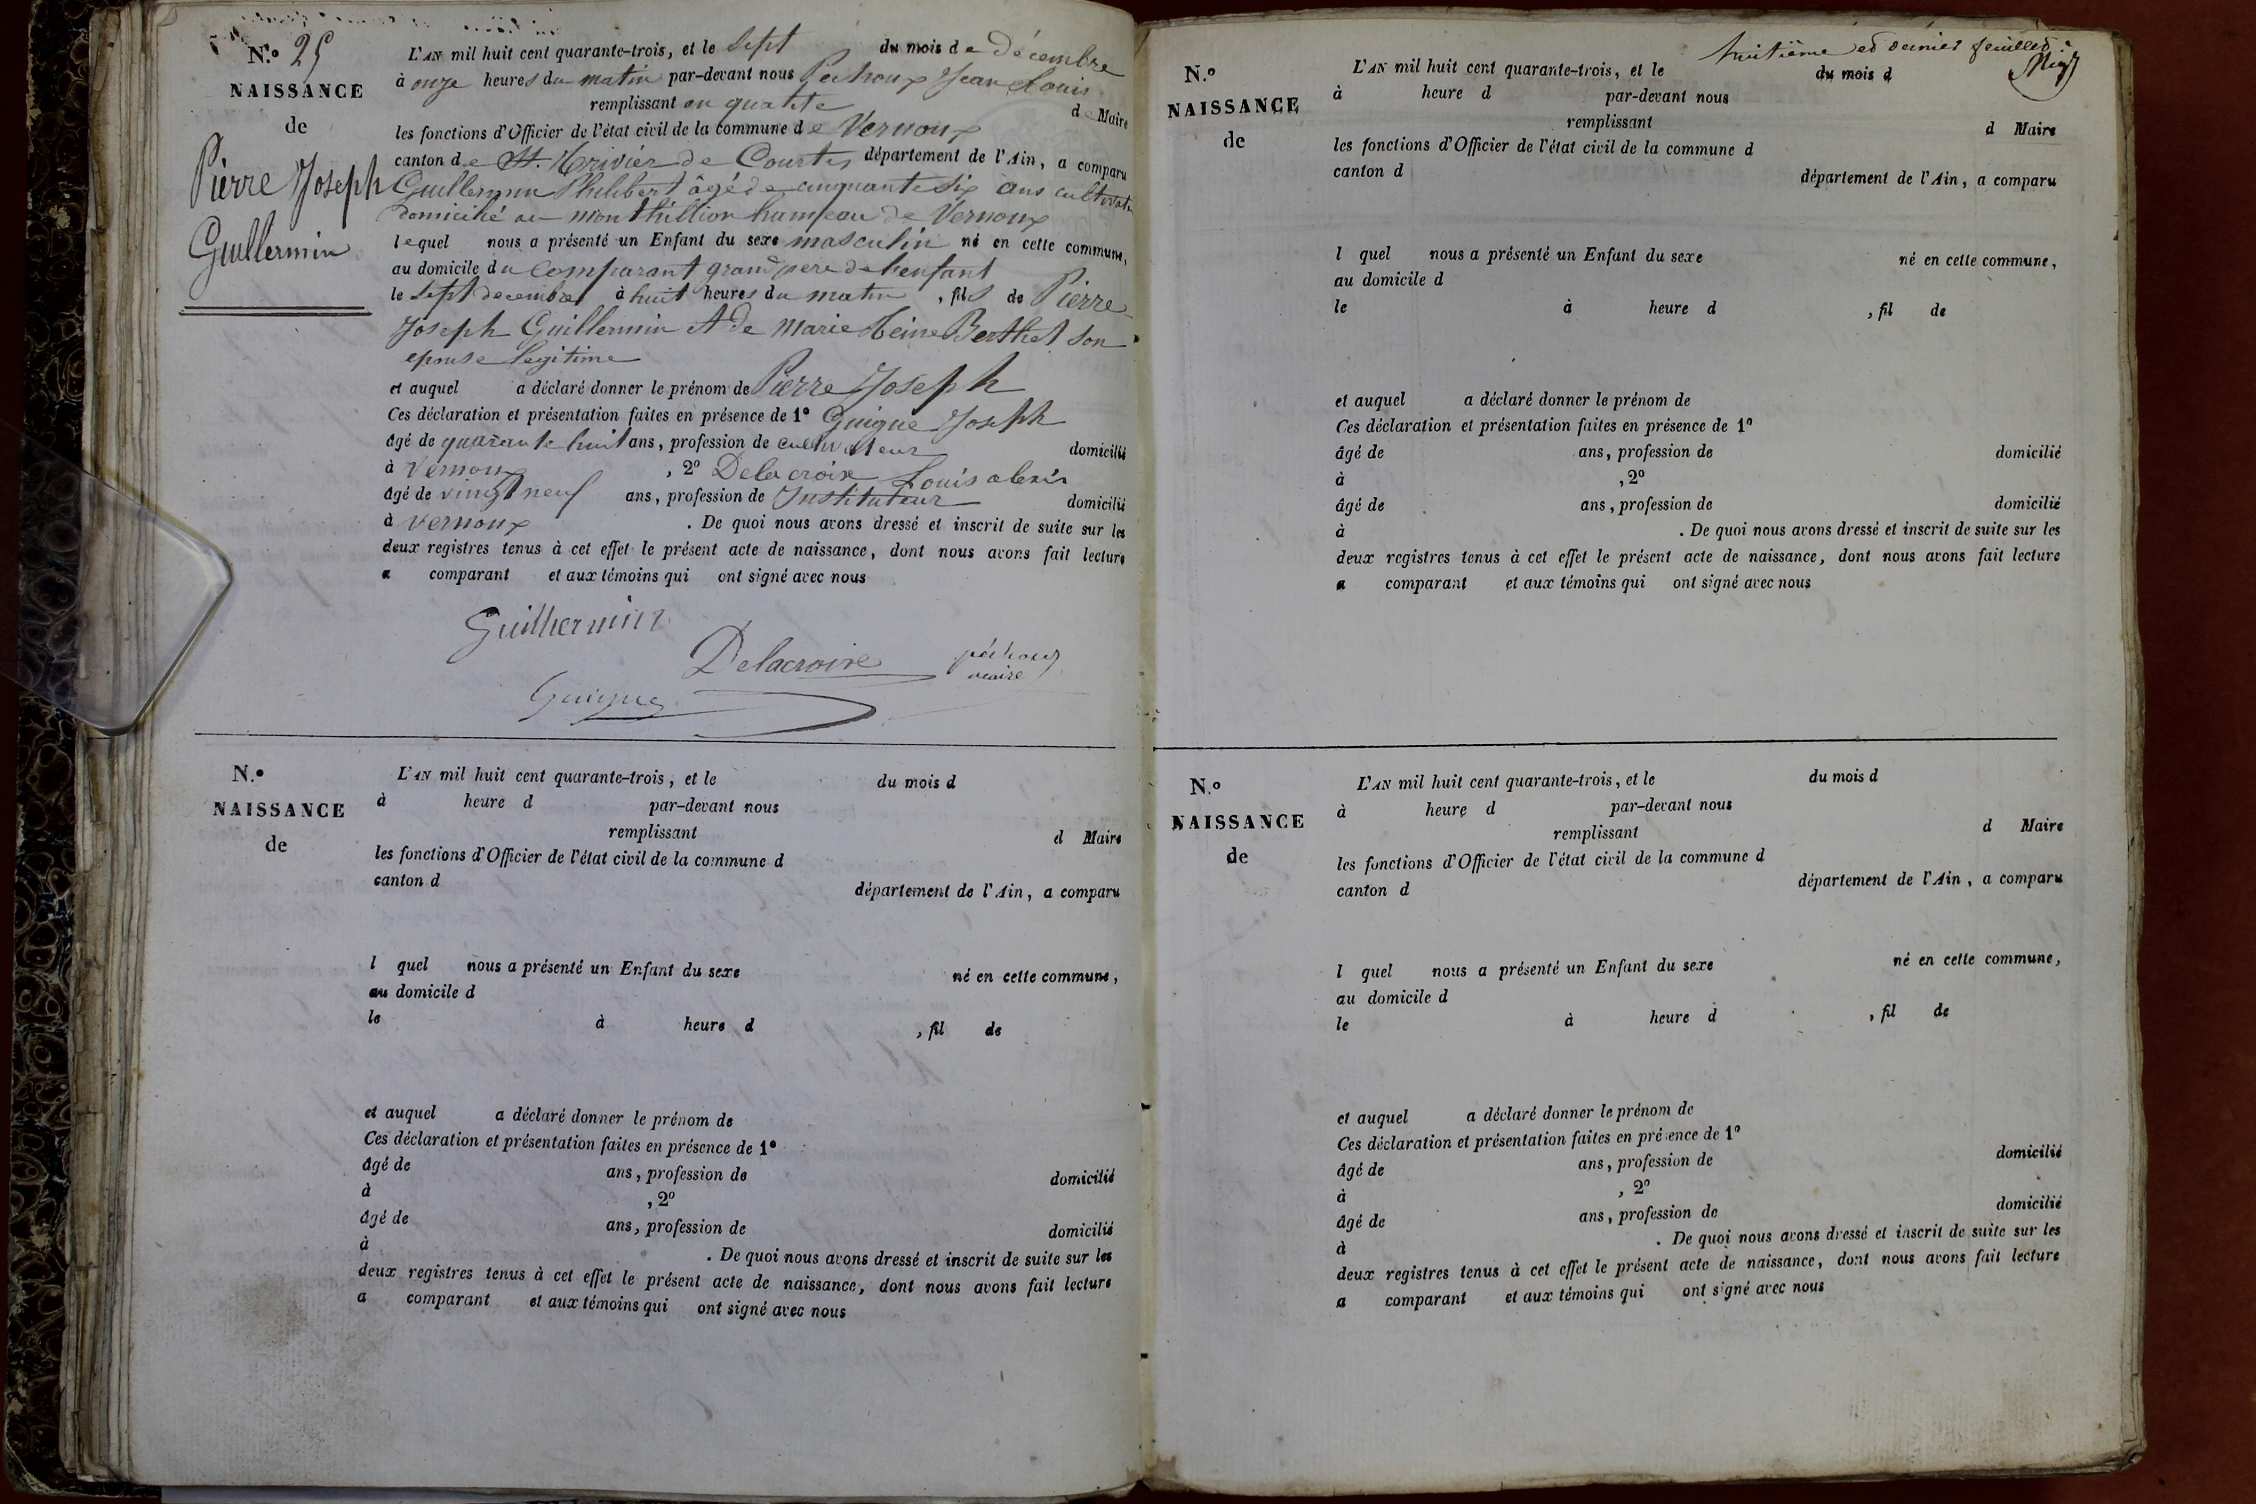 N.º 25
NAISSANCE
de
Pierre Joseph
Guillermin
L'AN mil huit cent quarante-trois, et le sept du mois de décembre
à onze heures du matin par-devant nous Pechoux Jean Louis
remplissant en qualité de Maire
les fonctions d'Officier de l'état civil de la commune de Vernoux
canton de St. Trivier de Courtes département de l'Ain, a comparu
Guillermin Philibert âgé de cinquante six ans cultivateur
domicilié au monthillion hameau de Vernoux
lequel nous a présenté un Enfant du sexe masculin né en cette commune,
au domicile du comparant grand pere de l'enfant
le sept decembre à huit heures du matin, fils de Pierre
Joseph Guillermin et de Marie Reine Berthet son
epouse legitime
et auquel a déclaré donner le prénom de Pierre Joseph
Ces déclaration et présentation faites en présence de 1º Guigue Joseph
âgé de quarante huit ans, profession de cultivateur domicilié
à vernoux, 2º Delacroix Louis alexis
âgé de vingt neuf ans, profession de Instituteur domicilié
à vernoux. De quoi nous avons dressé et inscrit de suite sur les
deux registres tenus à cet effet le présent acte de naissance, dont nous avons fait lecture
a comparant et aux témoins qui ont signé avec nous
Guillermin
Delacroix
péchoux
maire
Guigue
N.º
NAISSANCE
de
L'AN mil huit cent quarante-trois, et le du mois d
à heure d par-devant nous
remplissant d Maire
les fonctions d'Officier de l'état civil de la commune d
canton d département de l'Ain, a comparu
l quel nous a présenté un Enfant du sexe né en cette commune,
au domicile d
le à heure d , fil de
et auquel a déclaré donner le prénom de
Ces déclaration et présentation faites en présence de 1º
âgé de ans, profession de domicilié
à , 2º
âgé de ans, profession de domicilié
à . De quoi nous avons dressé et inscrit de suite sur les
deux registres tenus à cet effet le présent acte de naissance, dont nous avons fait lecture
a comparant et aux témoins qui ont signé avec nous
huitième et dernier feuillet
N.º
NAISSANCE
de
L'AN mil huit cent quarante-trois, et le du mois d
à heure d par-devant nous
remplissant d Maire
les fonctions d'Officier de l'état civil de la commune d
canton d département de l'Ain, a comparu
l quel nous a présenté un Enfant du sexe né en cette commune,
au domicile d
le à heure d , fil de
et auquel a déclaré donner le prénom de
Ces déclaration et présentation faites en présence de 1º
âgé de ans, profession de domicilié
à , 2º
âgé de ans, profession de domicilié
à . De quoi nous avons dressé et inscrit de suite sur les
deux registres tenus à cet effet le présent acte de naissance, dont nous avons fait lecture
a comparant et aux témoins qui ont signé avec nous
N.º
NAISSANCE
de
L'AN mil huit cent quarante-trois, et le du mois d
à heure d par-devant nous
remplissant d Maire
les fonctions d'Officier de l'état civil de la commune d
canton d département de l'Ain, a comparu
l quel nous a présenté un Enfant du sexe né en cette commune,
au domicile d
le à heure d , fil de
et auquel a déclaré donner le prénom de
Ces déclaration et présentation faites en présence de 1º
âgé de ans, profession de domicilié
à , 2º
âgé de ans, profession de domicilié
à . De quoi nous avons dressé et inscrit de suite sur les
deux registres tenus à cet effet le présent acte de naissance, dont nous avons fait lecture
a comparant et aux témoins qui ont signé avec nous